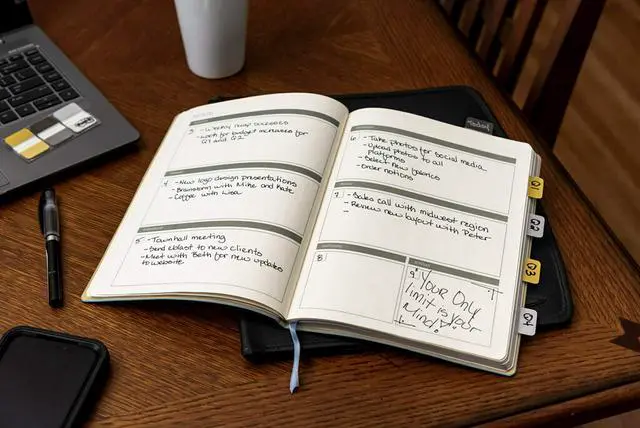 3 - Weekly recap successes
- Look for budget increases for
Q1 and Q2
4 - New logo design presentations
- Brainstorm with Mike and Kate
- Coffee with Lisa
5 - Townhall meeting
- Send eblast to new clients
- Meet with Beth for new updates
to website
6 - Take photos for social media
- Upload photos to all
platforms
- Select new fabrics
- Order notions
7 - Sales call with midwest region
- Review new layout with Peter
-
8
9 "Your Only
limit is your
Mind!"
Today
Q1
Q2
Q3
Q4